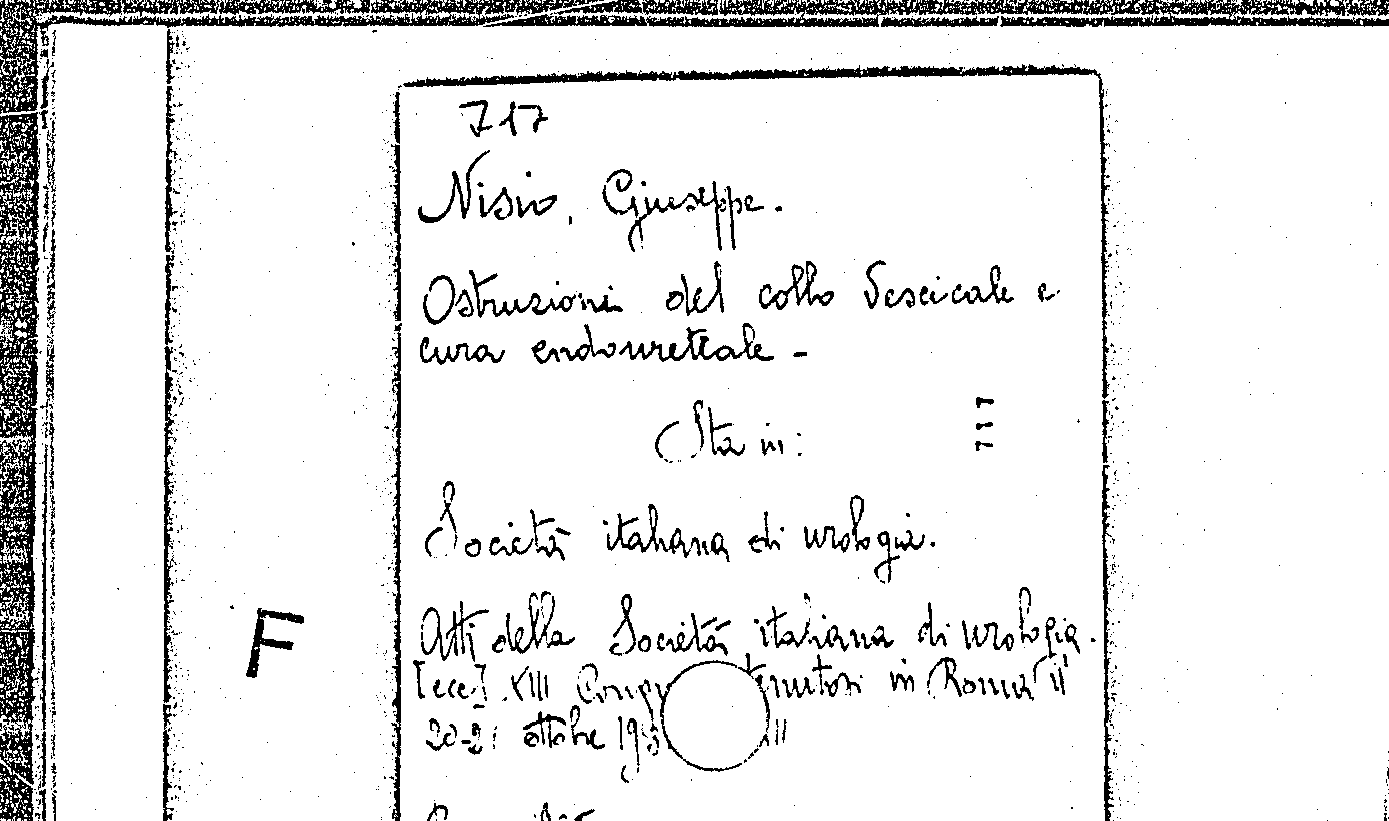 717
Nisio, Giuseppe.
Ostruzioni del collo vescicale e
cura endouretrale -
Sta in:
717
Società italiana di urologia.
Atti della Società italiana di urologia.
F
[ecc.] XIII tenutosi in Roma il
20-21 ottobre